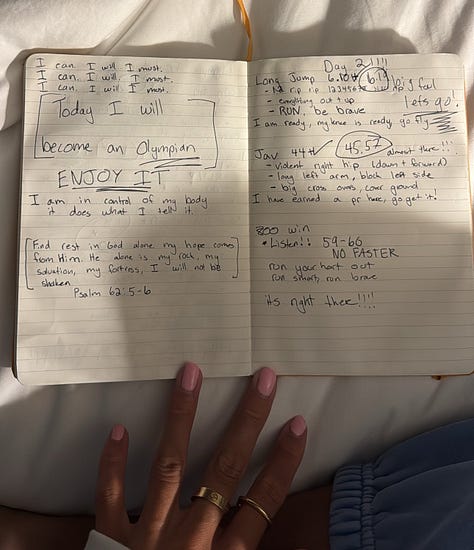 I can. I will. I must.
I can. I will. I must.
I can. I will. I must.
Today I will
become an Olympian
ENJOY IT
I am in control of my body
it does what I tell it.
Find rest in God alone my hope comes
from Him. He alone is my rock, my
salvation, my fortress, I will not be
shaken
Psalm 62:5-6
Day 2!!!!
Long Jump 6.10+
- everything out + up
- RUN, be brave
lets go!
I am ready, my knee is ready, go fly
Jav 44+ 45.57 almost there!!!
- violent right hip (down + forward)
- long left arm, block left side
- big cross overs, cover ground
I have earned a pr here, go get it!
800 win
• Listen!! 59-66
NO FASTER
run your heart out
run smart, run brave
its right there!!!!